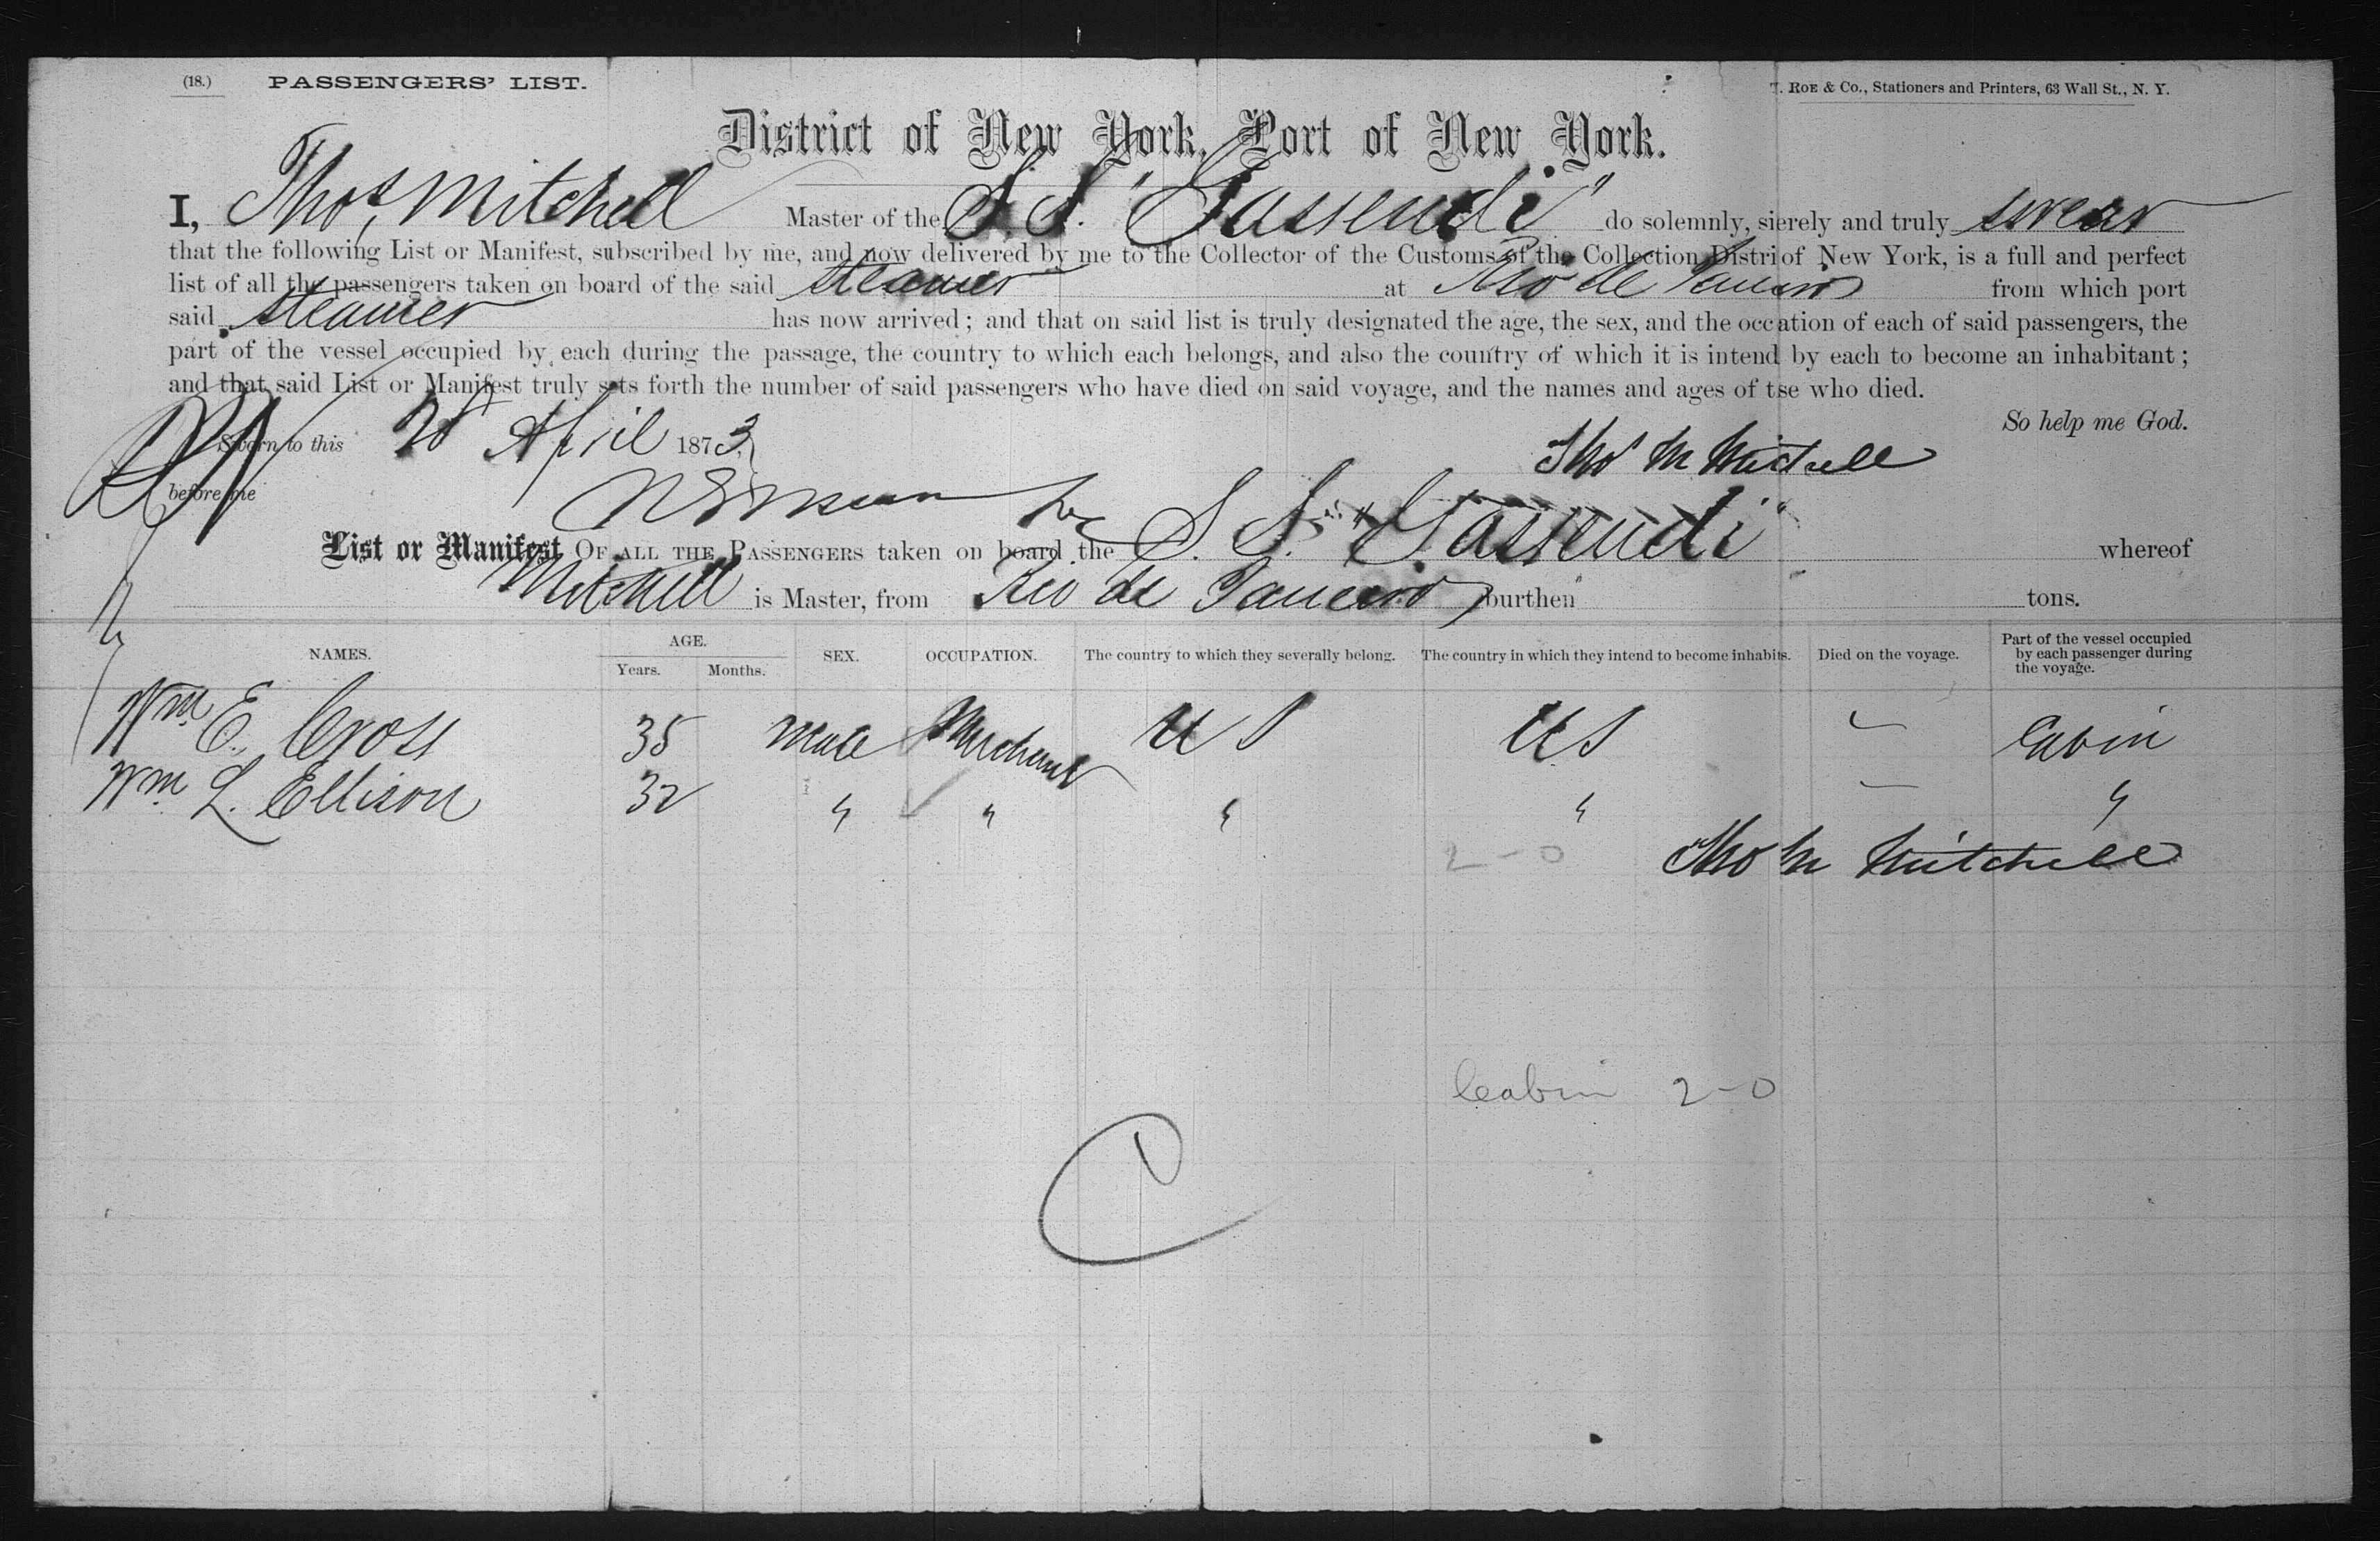 (18.) PASSENGERS' LIST. T. ROE & Co., Stationers and Printers, 63 Wall St., N. Y.
District of New York, Port of New York.
I, Thos Mitchell Master of the S.S. "Gassendi" do solemnly, sierely and truly swear
that the following List or Manifest, subscribed by me, and now delivered by me to the Collector of the Customs of the Collection Distri of New York, is a full and perfect
list of all the passengers taken on board of the said steamer at Rio de Janeiro from which port
said steamer has now arrived; and that on said list is truly designated the age, the sex, and the occation of each of said passengers, the
part of the vessel occupied by each during the passage, the country to which each belongs, and also the country of which it is intend by each to become an inhabitant;
and that said List or Manifest truly sets forth the number of said passengers who have died on said voyage, and the names and ages of tse who died.
So help me God.
Sworn to this April 1873
Tho M Mitchell
before me
List or Manifest OF ALL THE PASSENGERS taken on board the S. S. "Gassendi" whereof
Mitchell is Master, from Rio de Janeiro burthen tons.
NAMES. AGE. Years. Months. SEX. OCCUPATION. The country to which they severally belong. The country in which they intend to become inhabits. Died on the voyage. Part of the vessel occupied by each passenger during the voyage.
Wm E. Cross 35 Male Merchant U S U S – Cabin
Wm L. Ellison 32 " " " " – "
2 - 0 Tho M Mitchell
Cabin 2 - 0
C